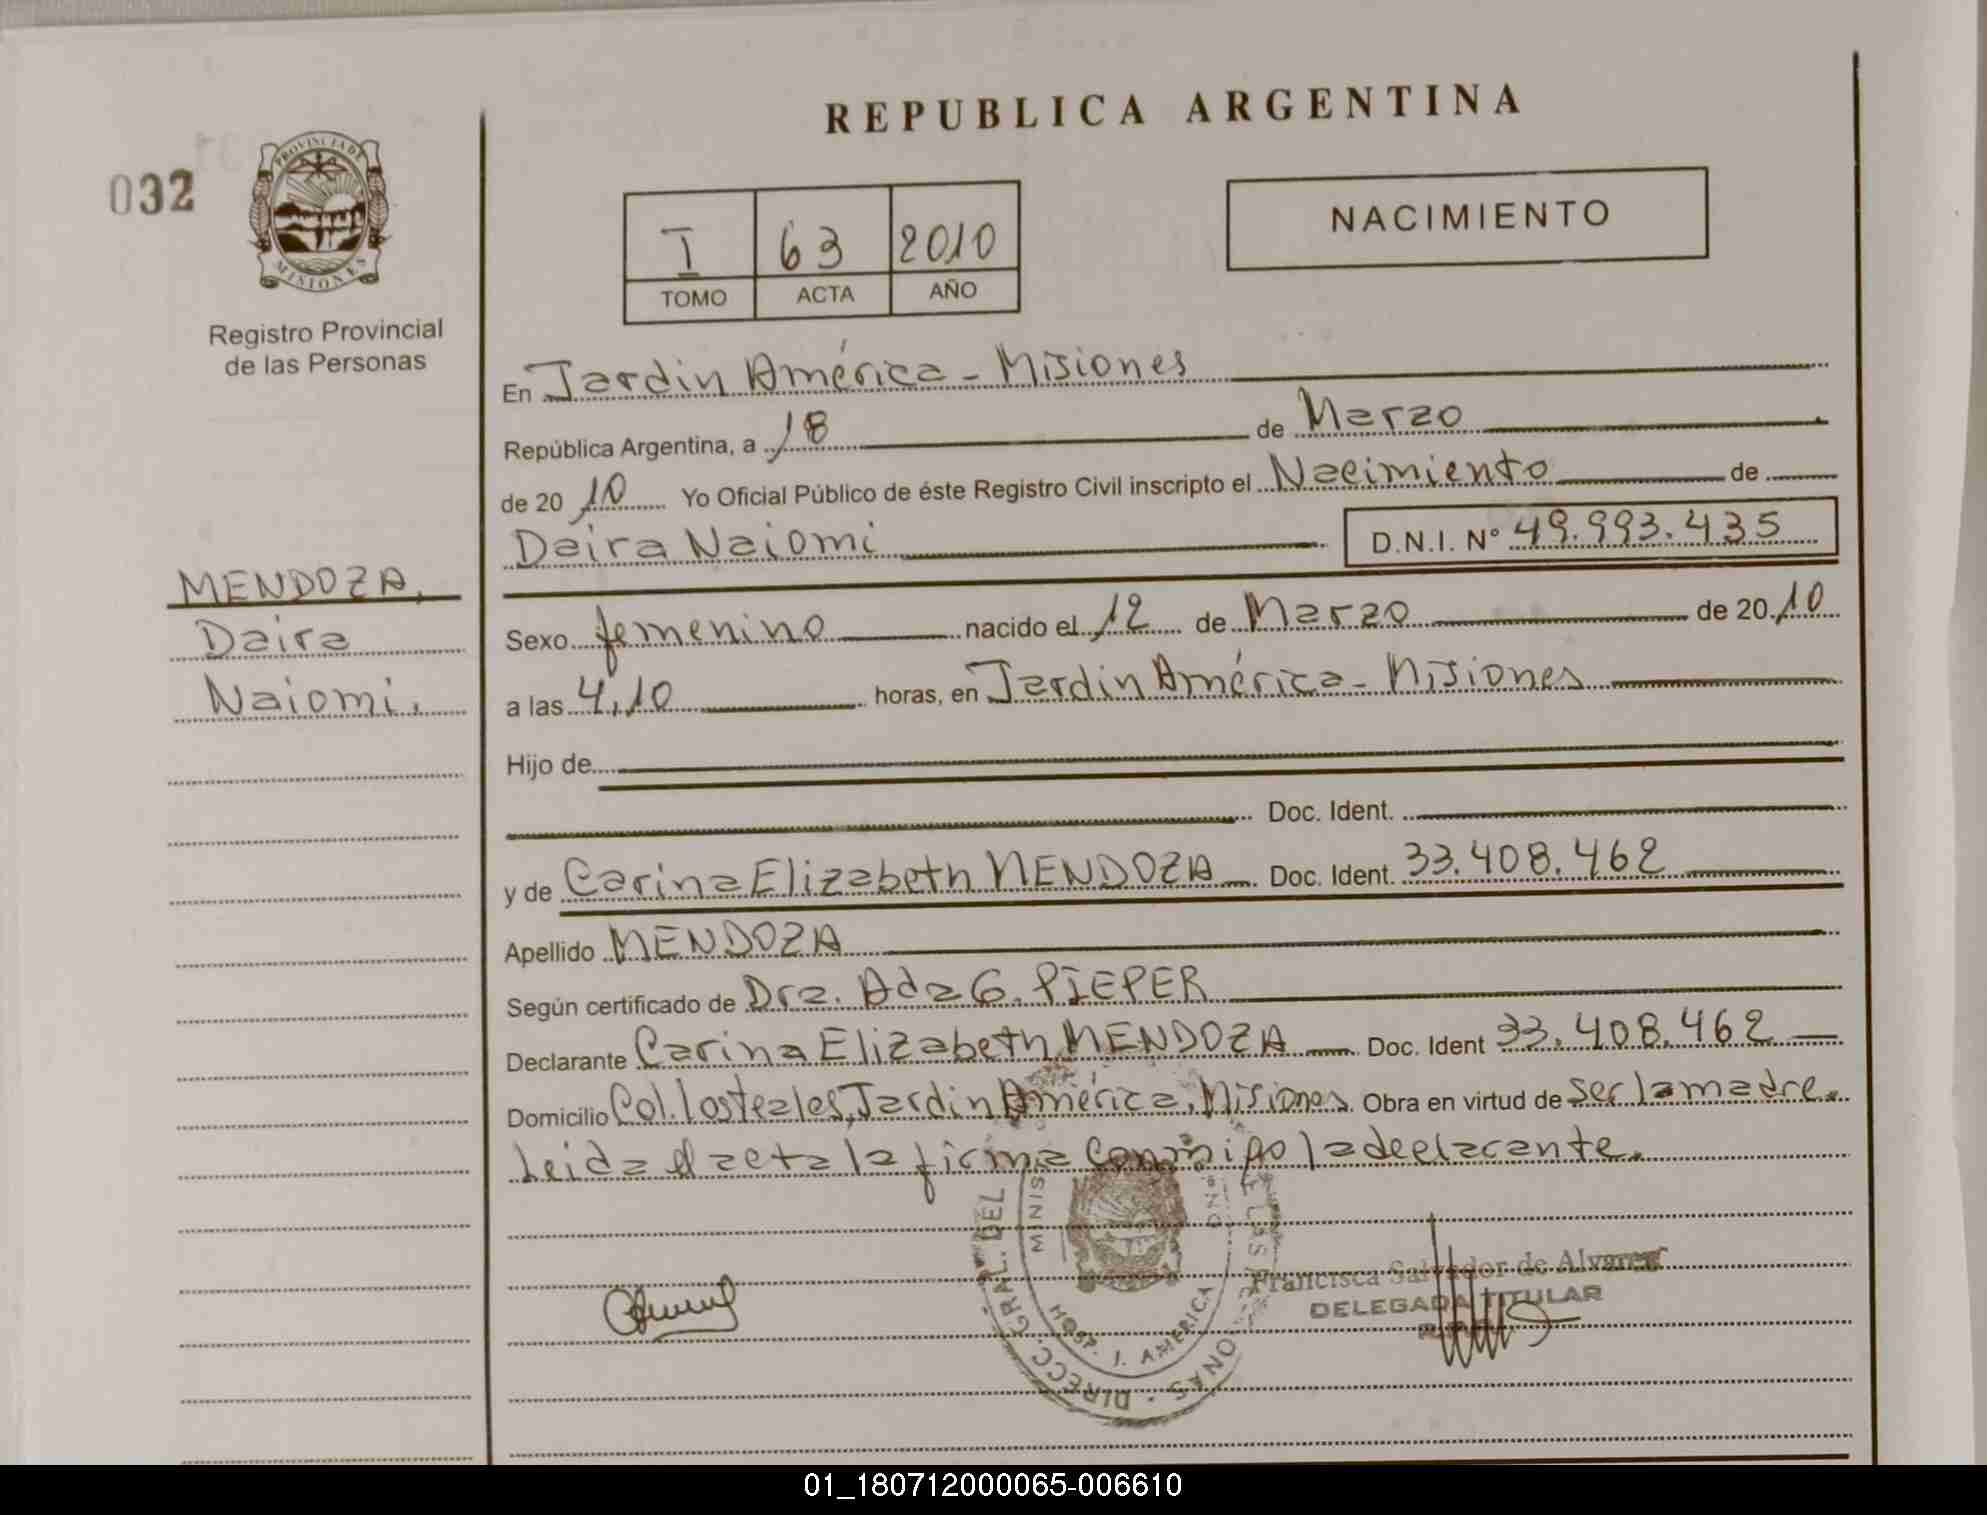 REPUBLICA ARGENTINA
032
PROVINCIA DE
MISIONES
Registro Provincial
de las Personas
I 63 2010
TOMO ACTA AÑO
NACIMIENTO
En Jardin América - Misiones
República Argentina, a 18 de Marzo
de 20 10 Yo Oficial Público de éste Registro Civil inscripto el Nacimiento de
Daira Naiomi D.N.I. N° 49.993.435
MENDOZA,
Daira
Naiomi.
Sexo femenino nacido el 12 de Marzo de 20 10
a las 4,10 horas, en Jardin América - Misiones
Hijo de
Doc. Ident.
y de Carina Elizabeth MENDOZA Doc. Ident. 33.408.462
Apellido MENDOZA
Según certificado de Dra. Ada G. PIEPER
Declarante Carina Elizabeth MENDOZA Doc. Ident 33.408.462
Domicilio Col. los teales, Jardin América, Misiones. Obra en virtud de ser la madre.
Leida el acta la firma conmigo la declarante.
DIRECC. GRAL. DEL
MINIS
HOSP. J. AMERICA
Francisca Salvador de Alvarez
DELEGADA TITULAR
01_180712000065-006610